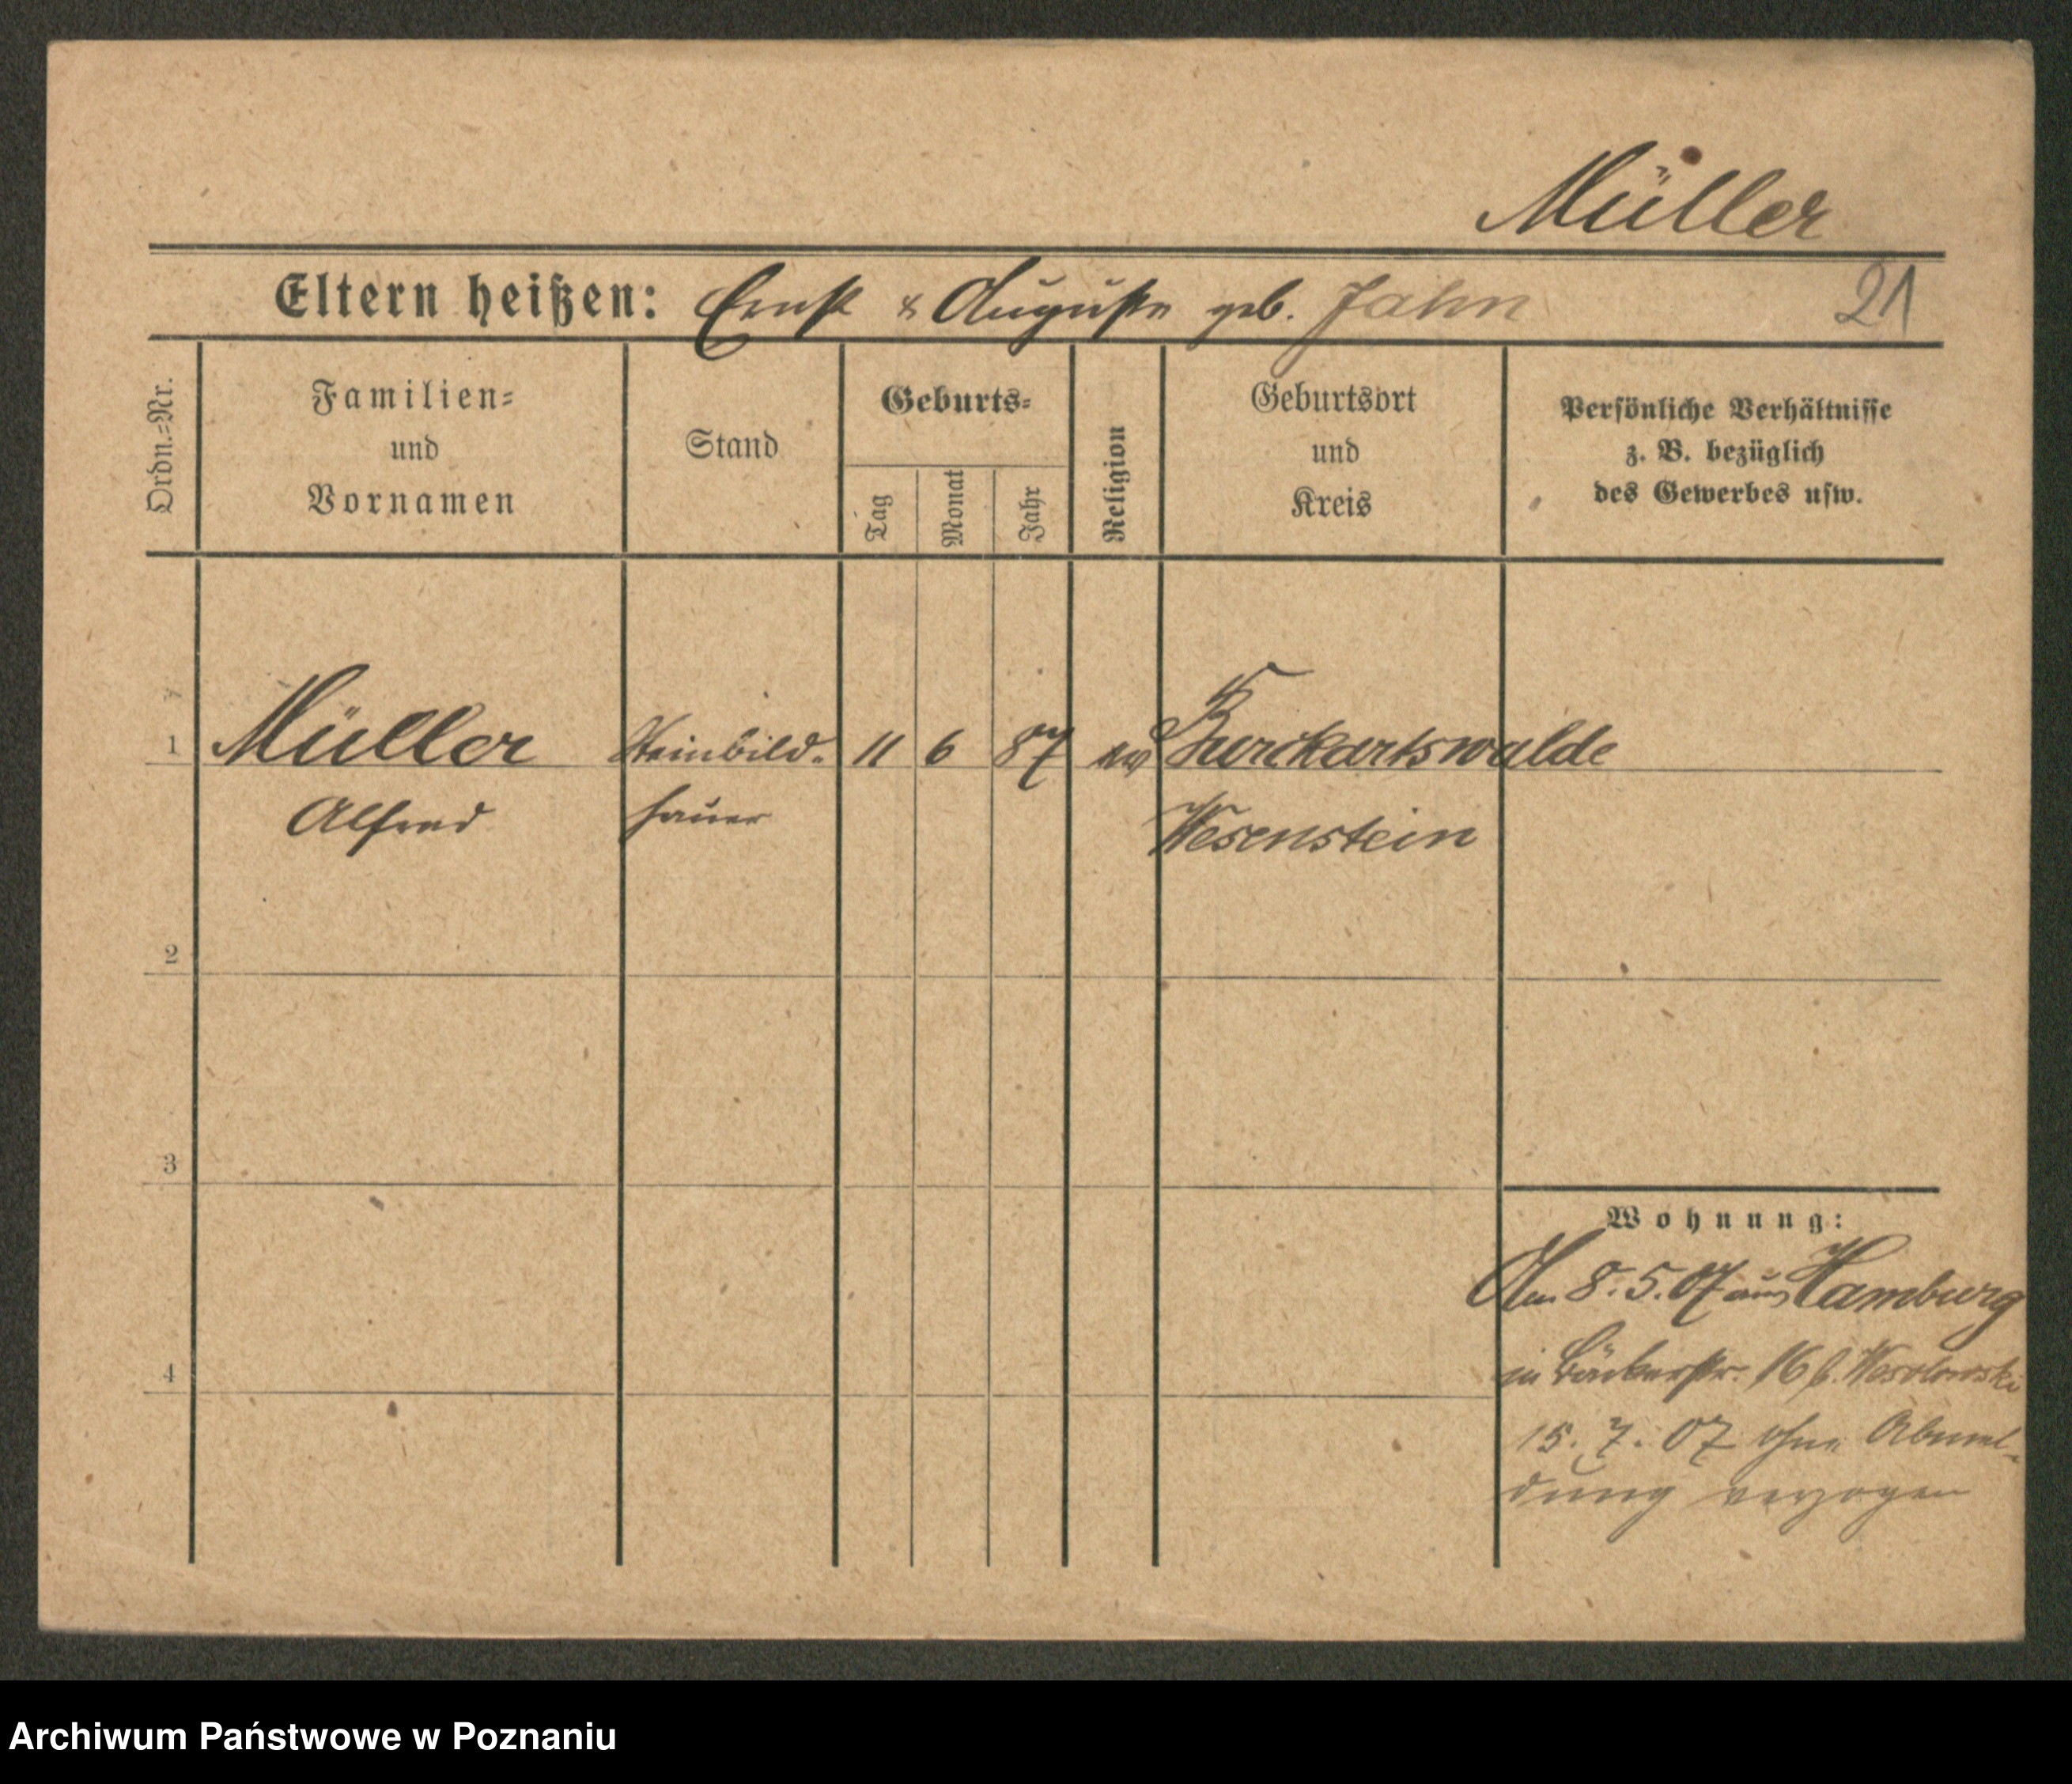 Müller
Eltern heißen: Ernst & Auguste geb. Jahn 21
Ordn.=Nr.
Familien=
und
Vornamen
Stand
Geburts=
Tag
Monat
Jahr
Religion
Geburtsort
und
Kreis
Persönliche Verhältnisse
z. B. bezüglich
des Gewerbes usw.
1 Müller Steinbild. 11 6 87 ev Burckartswalde
Alfred hauer Wesenstein
2
3
4
Wohnung:
Am 8.5.07 aus Hamburg
in Bäckerstr. 16 b. Wesolowski
15.7.07 ohne Abmel-
dung verzogen
Archiwum Państwowe w Poznaniu